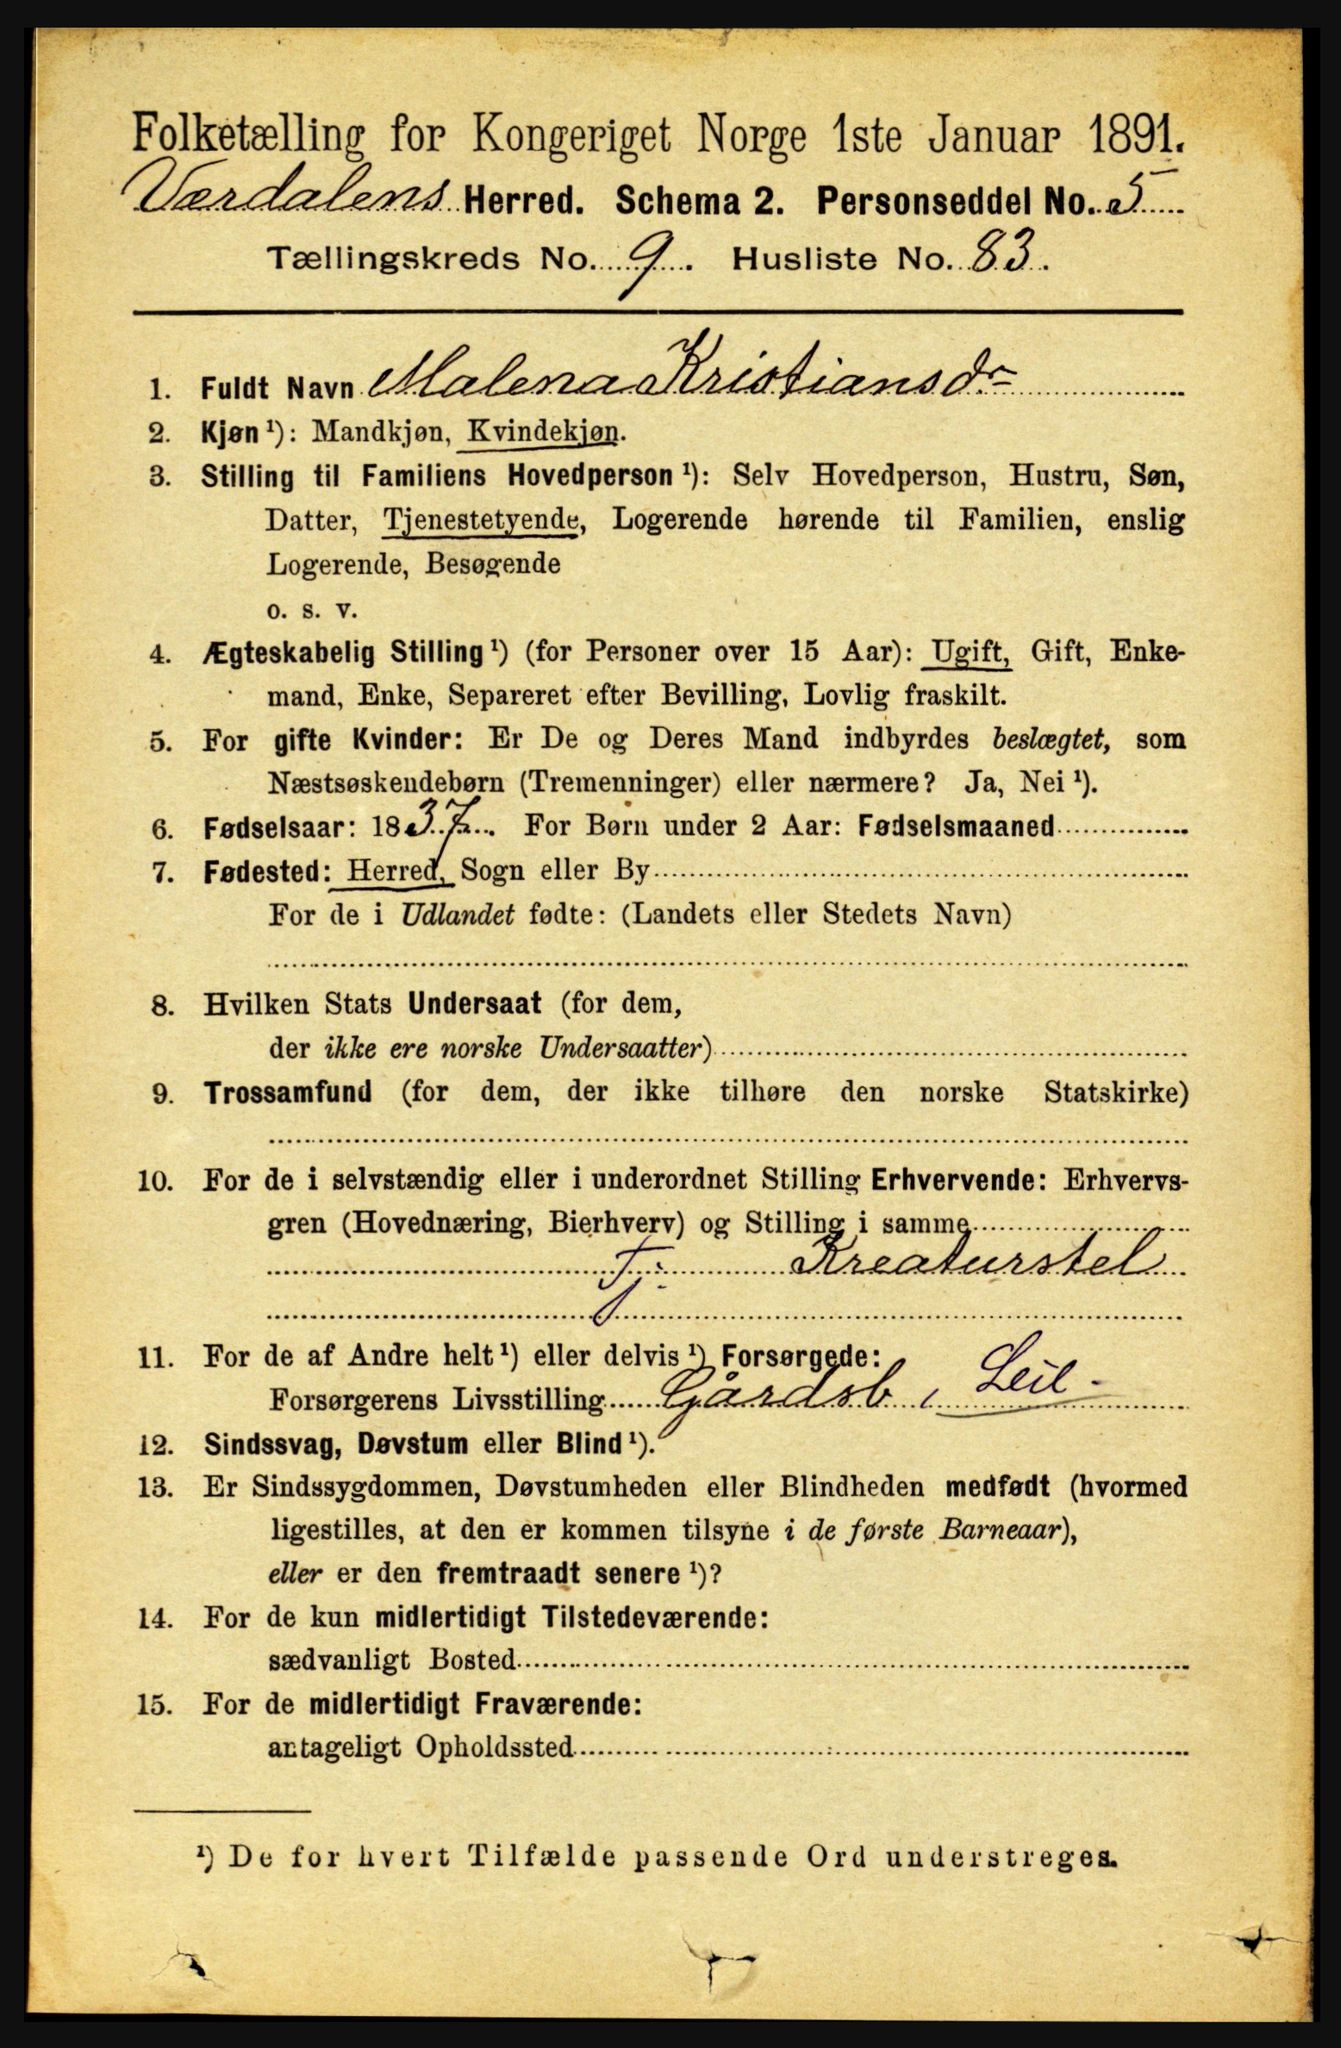 Folketælling for Kongeriget Norge 1ste Januar 1891.
Værdalens Herred. Schema 2. Personseddel No. 5
Tællingskreds No. 9. Husliste No. 83.
1. Fuldt Navn Malena Kristiansdr
2. Kjøn ¹): Mandkjøn, Kvindekjøn.
3. Stilling til Familiens Hovedperson ¹): Selv Hovedperson, Hustru, Søn,
Datter, Tjenestetyende, Logerende hørende til Familien, enslig
Logerende, Besøgende
o. s. v.
4. Ægteskabelig Stilling ¹) (for Personer over 15 Aar): Ugift, Gift, Enke-
mand, Enke, Separeret efter Bevilling, Lovlig fraskilt.
5. For gifte Kvinder: Er De og Deres Mand indbyrdes beslægtet, som
Næstsøskendebørn (Tremenninger) eller nærmere? Ja, Nei ¹).
6. Fødselsaar: 1837. For Børn under 2 Aar: Fødselsmaaned
7. Fødested: Herred, Sogn eller By
For de i Udlandet fødte: (Landets eller Stedets Navn)
8. Hvilken Stats Undersaat (for dem,
der ikke ere norske Undersaatter)
9. Trossamfund (for dem, der ikke tilhøre den norske Statskirke)
10. For de i selvstændig eller i underordnet Stilling Erhvervende: Erhvervs-
gren (Hovednæring, Bierhverv) og Stilling i samme
Tj. Kreaturstel
11. For de af Andre helt ¹) eller delvis ¹) Forsørgede:
Forsørgerens Livsstilling Gårdsb, Leil-
12. Sindssvag, Døvstum eller Blind ¹).
13. Er Sindssygdommen, Døvstumheden eller Blindheden medfødt (hvormed
ligestilles, at den er kommen tilsyne i de første Barneaar),
eller er den fremtraadt senere ¹)?
14. For de kun midlertidigt Tilstedeværende:
sædvanligt Bosted
15. For de midlertidigt Fraværende:
antageligt Opholdssted
¹) De for hvert Tilfælde passende Ord understreges.